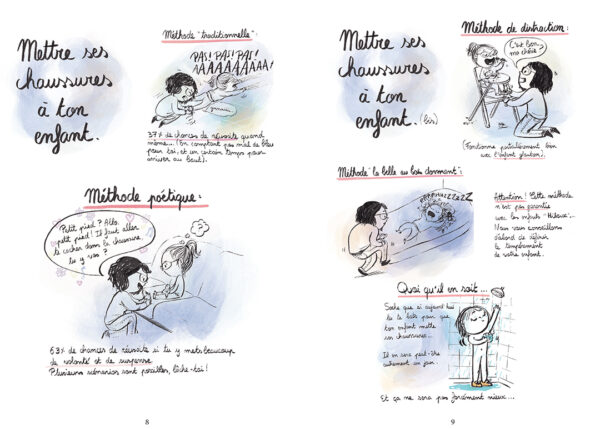 Mettre ses
chaussures
à ton
enfant.
Méthode "traditionnelle":
PAS! PAS! PAS!
AAAAAAAAA!
37% de chances de réussite quand
même... (En comptant pas mal de bleus
pour toi, et un certain temps pour
arriver au bout).
Méthode poétique:
Petit pied? Allo.
petit pied! Il faut aller
te cacher dans ta chaussure
tu y vas?
63% de chances de réussite si tu y mets beaucoup
de volonté et de suspense.
Plusieurs scénarios sont possibles, lâche-toi!
8
Mettre ses
chaussures
à ton
enfant. (bis)
Méthode de distraction:
C'est bon
ma chérie?
(Fonctionne particulièrement bien
avec l'enfant glouton).
Méthode "la belle au bois dormant":
Attention! Cette méthode
n'est pas garantie
avec les enfants "Hiboux"...
Nous vous conseillons
d'abord de définir
le tempérament
de votre enfant.
Quoi qu'il en soit...
Sache que si aujourd'hui
tu te bats pour que
ton enfant mette
ses chaussures...
Il en sera peut-être
autrement un jour.
Et ça ne sera pas forcément mieux...
9